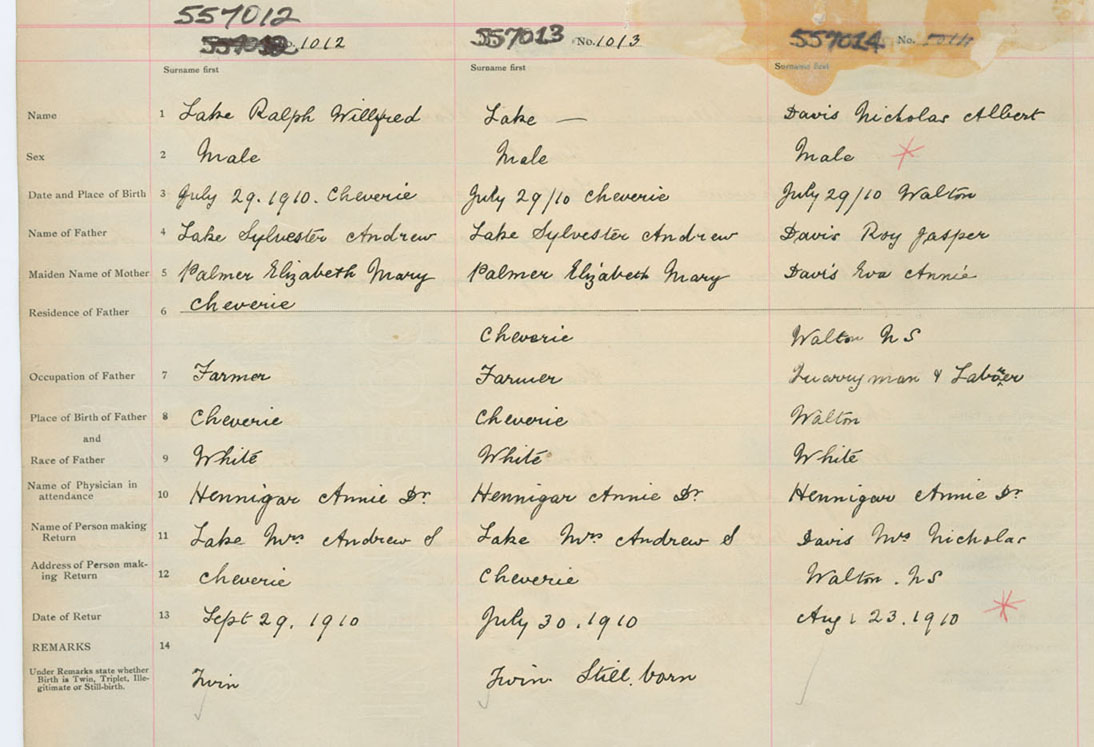 557012
No. 1012 557013 No. 1013 557014 No.
Surname first Surname first Surname first
Name 1 Lake Ralph Willfred Lake — Davis Nicholas Albert
Sex 2 Male Male Male
Date and Place of Birth 3 July 29. 1910. Cheverie July 29/10 Cheverie July 29/10 Walton
Name of Father 4 Lake Sylvester Andrew Lake Sylvester Andrew Davis Roy Jasper
Maiden Name of Mother 5 Palmer Elizabeth Mary Palmer Elizabeth Mary Davis Eva Annie
Cheverie
Residence of Father 6
Cheverie Walton NS
Occupation of Father 7 Farmer Farmer Quarryman & Laborer
Place of Birth of Father 8 Cheverie Cheverie Walton
and
Race of Father 9 White White White
Name of Physician in
attendance 10 Hennigar Annie Dr Hennigar Annie Dr Hennigar Annie Dr
Name of Person making
Return 11 Lake Mrs Andrew S Lake Mrs Andrew S Davis Mrs Nicholas
Address of Person mak-
ing Return 12 Cheverie Cheverie Walton. NS
Date of Retur 13 Sept 29. 1910 July 30. 1910 Aug 23. 1910
REMARKS 14
Under Remarks state whether
Birth is Twin, Triplet, Ille-
gitimate or Still-birth.
Twin Twin Still born